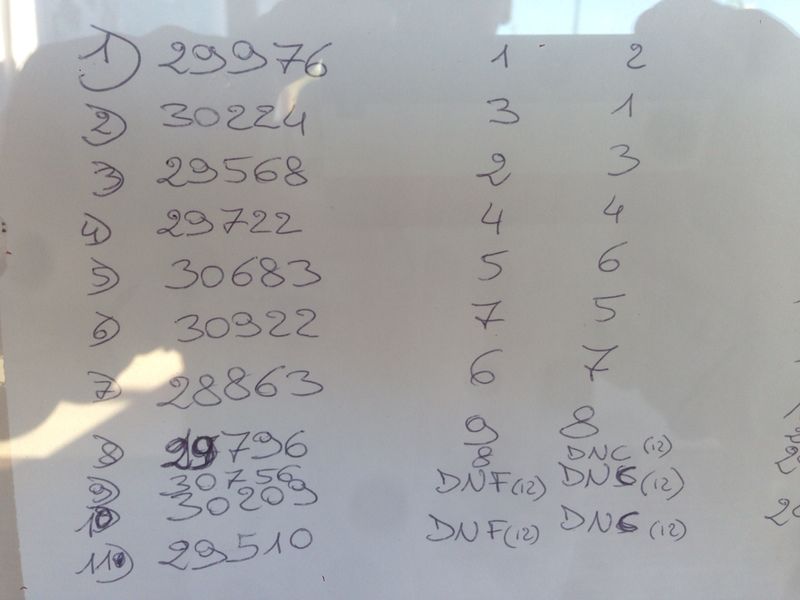 1) 29976 1 2
2) 30224 3 1
3) 29568 2 3
4) 29722 4 4
5) 30683 5 6
6) 30922 7 5
7) 28863 6 7
8) 29796 9 8
9) 30756 8 DNC (12)
10) 30209 DNF (12) DNS (12)
11) 29510 DNF (12) DNS (12)